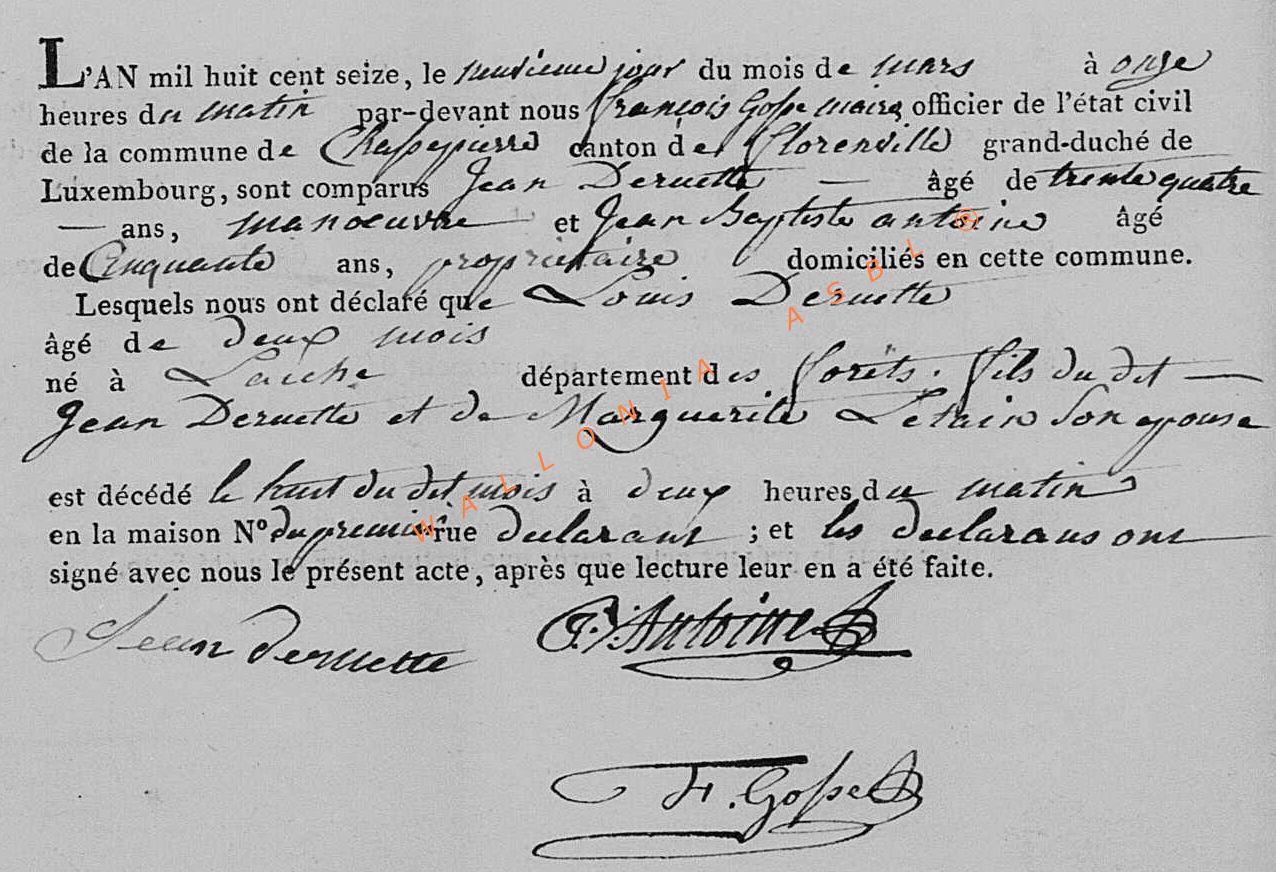 L'AN mil huit cent seize, le neuvieme jour du mois de mars à onze
heures du matin par-devant nous françois Gosse maire officier de l'état civil
de la commune de Chassepierre canton de florenville grand-duché de
Luxembourg, sont comparus Jean Deruette — âgé de trente quatre
— ans, manoeuvre et Jean Baptiste antoine âgé
de Cinquante ans, propriétaire domiciliés en cette commune.
Lesquels nous ont déclaré que Louis Deruette
âgé de deux mois
né à Laiche département des forêts. fils du dit —
Jean Deruette et de Marguerite Letrein son epouse
est décédé le huit du dit mois à deux heures du matin
en la maison N° du premier rue declarant ; et les declarans ont
signé avec nous le présent acte, après que lecture leur en a été faite.
Jean deruette Antoine
F. Gosse
WALLONIA ASBL ®